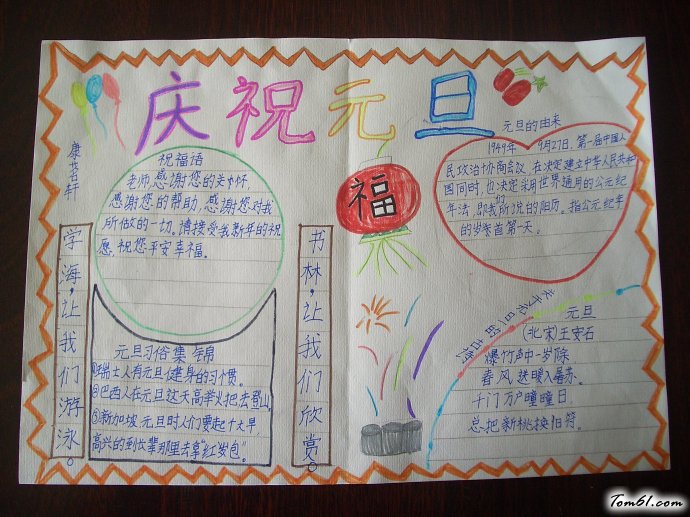 庆祝元旦
康茗轩
祝福语
老师,感谢您的关怀,
感谢您的帮助,感谢您对我
所做的一切。请接受我新年的祝
愿,祝您平安幸福。
学海,让我们游泳。
元旦习俗集锦
①瑞士人有元旦健身的习惯。
②巴西人在元旦这天高举火把去登山。
③新加坡元旦时人们要起个大早,
高兴的到长辈那里去拿“红岁包”。
书林,让我们欣赏。
福
元旦的由来
1949年9月27日,第一届中国人
民政治协商会议,在决定建立中华人民共和
国同时,也决定采用世界通用的公元纪
年法,即我们所说的阳历。指公元纪年
的岁首第一天。
关于元旦的古诗
元旦
(北宋)王安石
爆竹声中一岁除
春风送暖入屠苏.
千门万户曈曈日,
总把新桃换旧符.
Tom61.com